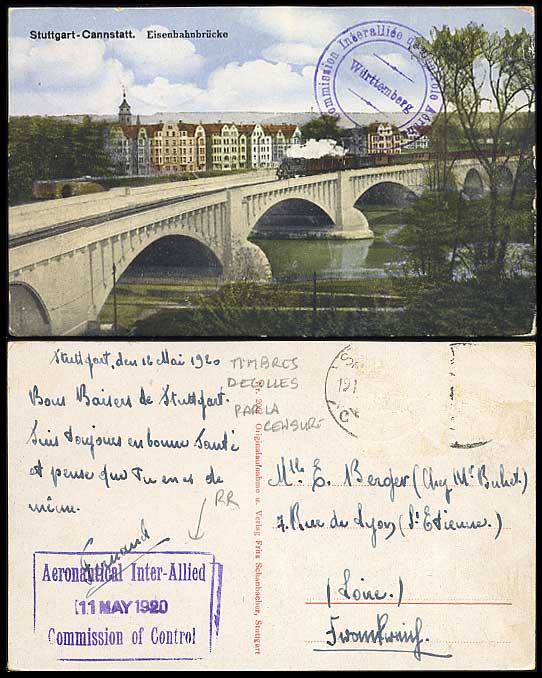 Stuttgart-Cannstatt. Eisenbahnbrücke
Commission Interalliée
Württemberg
Stuttgart, den 12 Mai 1920
Bons Baisers de Stuttgart.
Suis toujours en bonne Santé
et pense que Tu en es de
même.
Fernand
TIMBRES
DECOLLES
PAR LA
CENSURE
RR
Aeronautical Inter-Allied
11 MAY 1920
Commission of Control
Originalaufnahme u. Verlag Fritz Schanbacher, Stuttgart
Mlle E. Berger (Chez Mr Buhet.)
7. Rue de Lyon (St Etienne.)
(Loire.)
Frankreich.